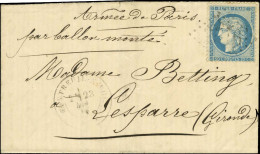 Armée de Paris
par ballon monté
Madame Betting
Lesparre
(Gironde)